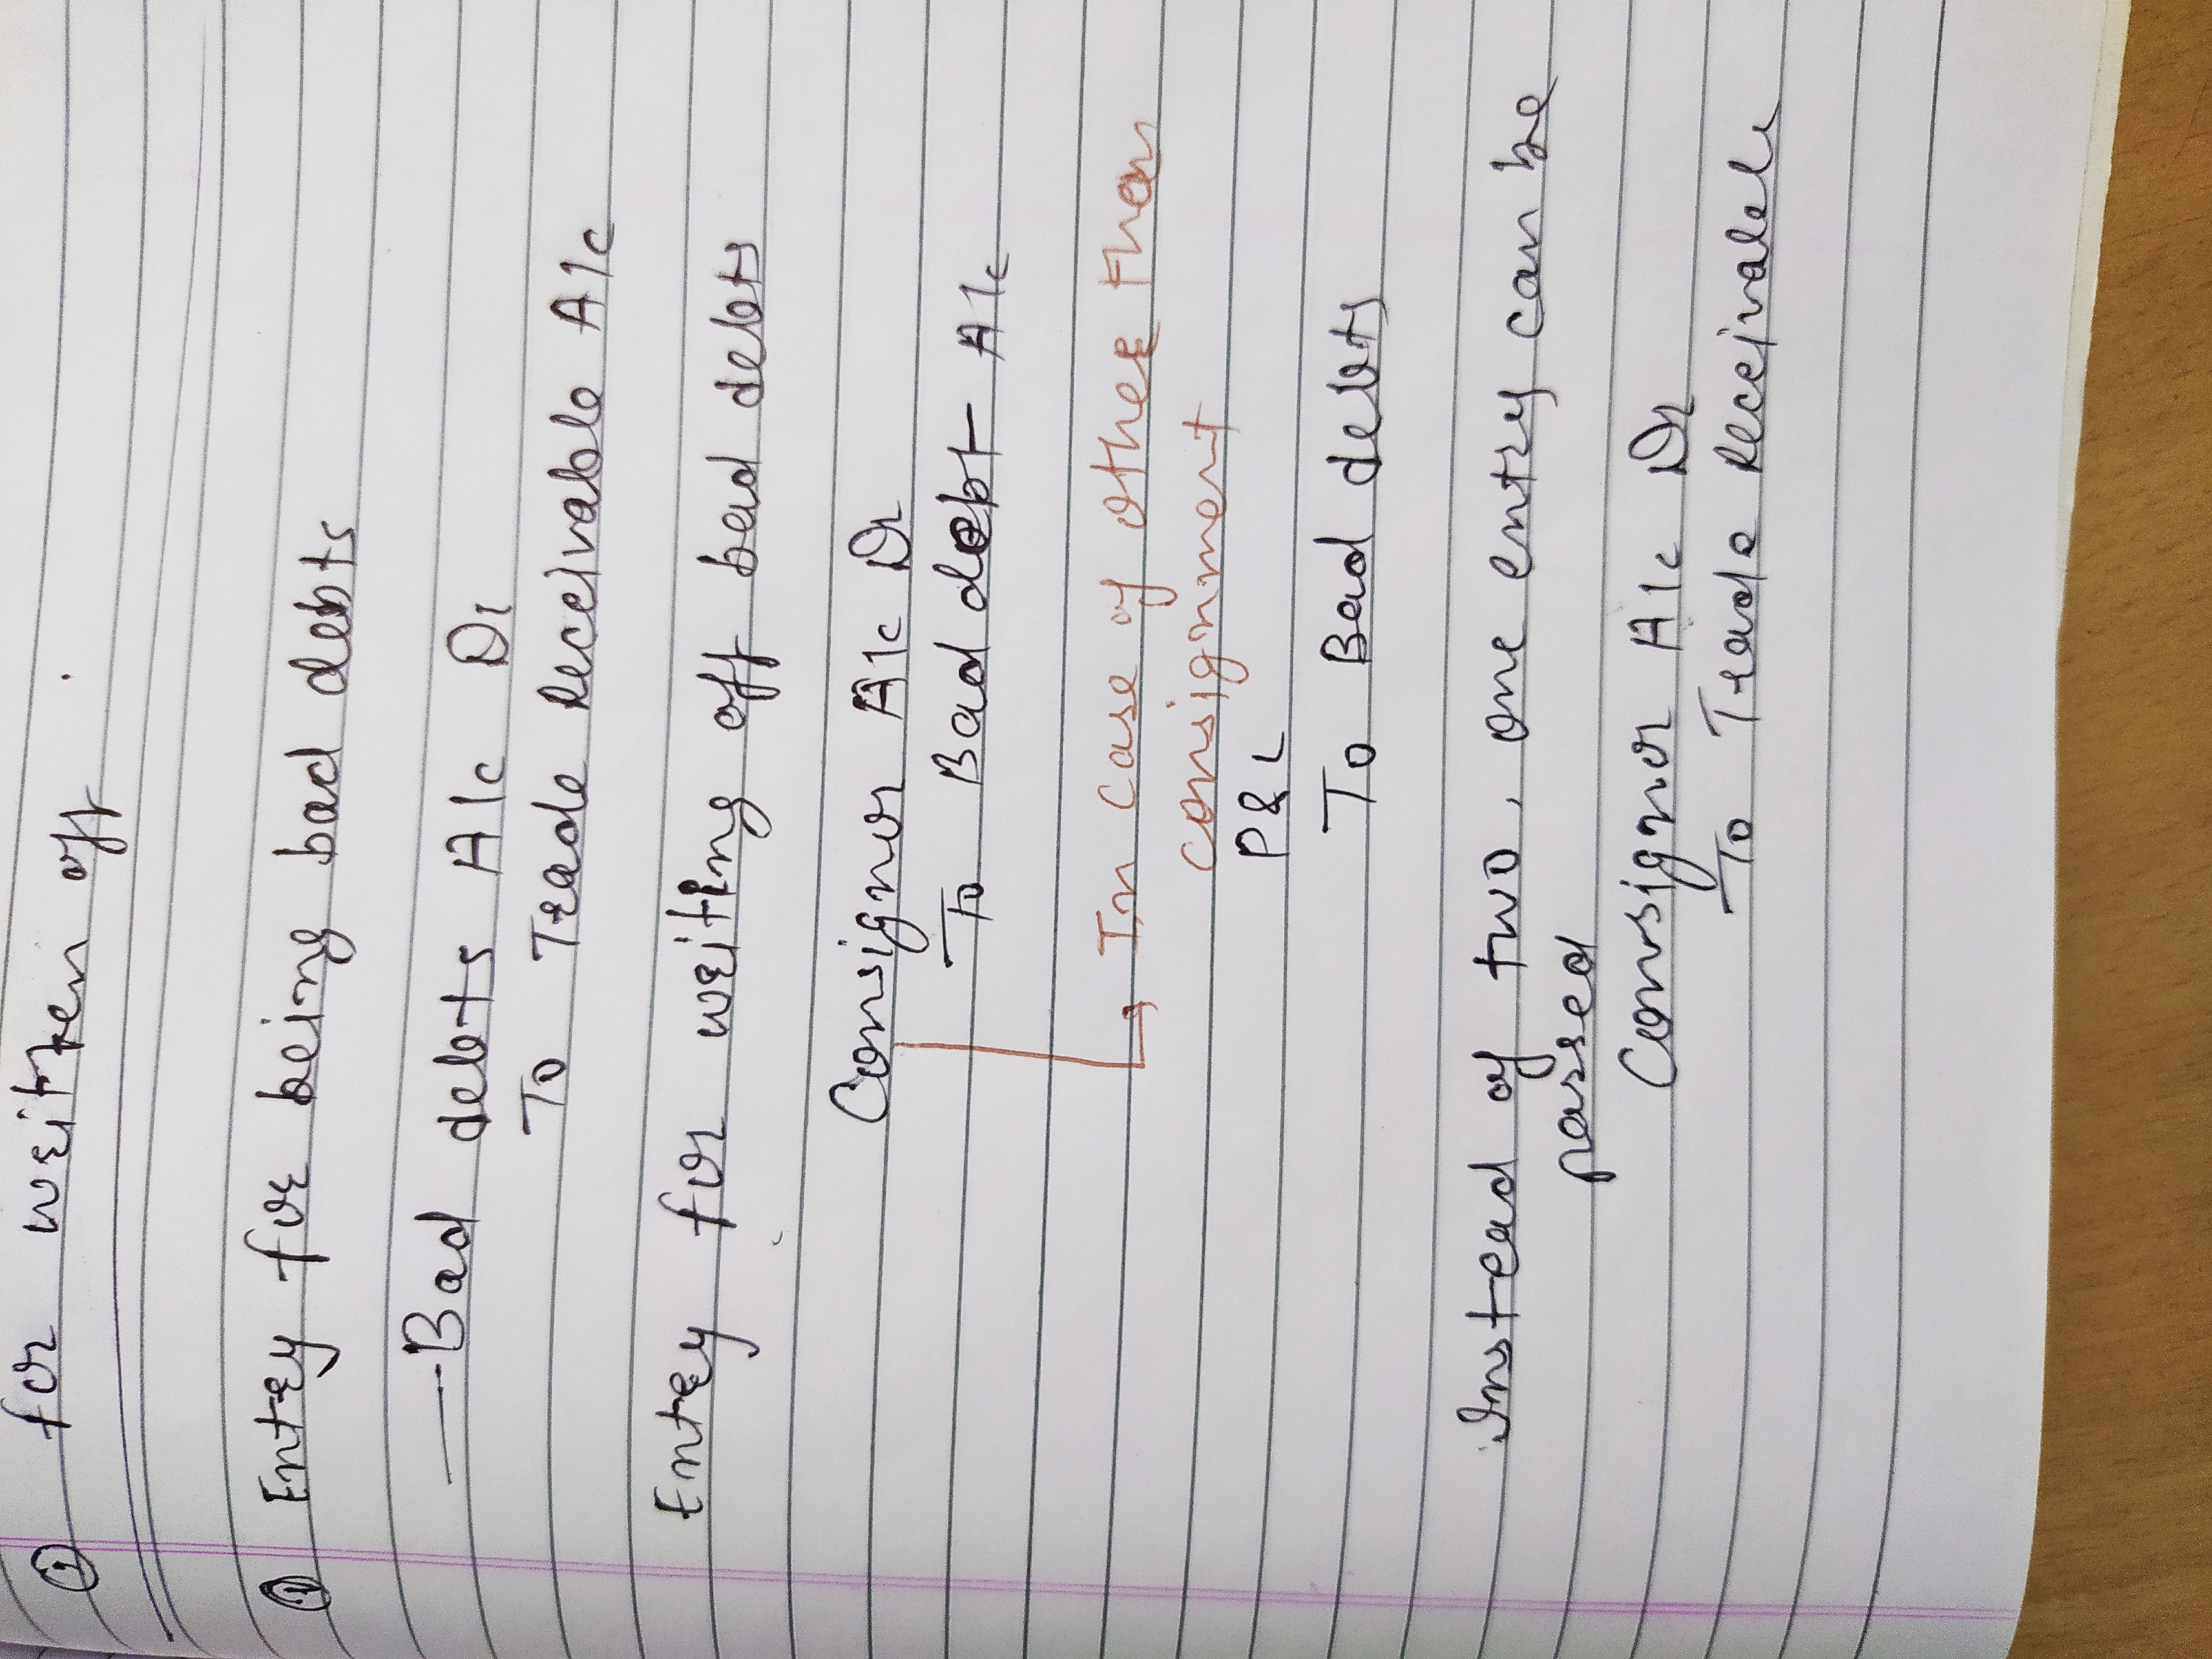 ① for written off
① Entry for being bad debts
— Bad debts A/c Dr
To Trade Receivable A/c
Entry for writing off bad debts
Consignor A/c Dr
To Bad debt A/c
↳ In case of other than
consignment
P & L
To Bad debts
Instead of two, one entry can be
passed
Consignor A/c Dr
To Trade Receivable